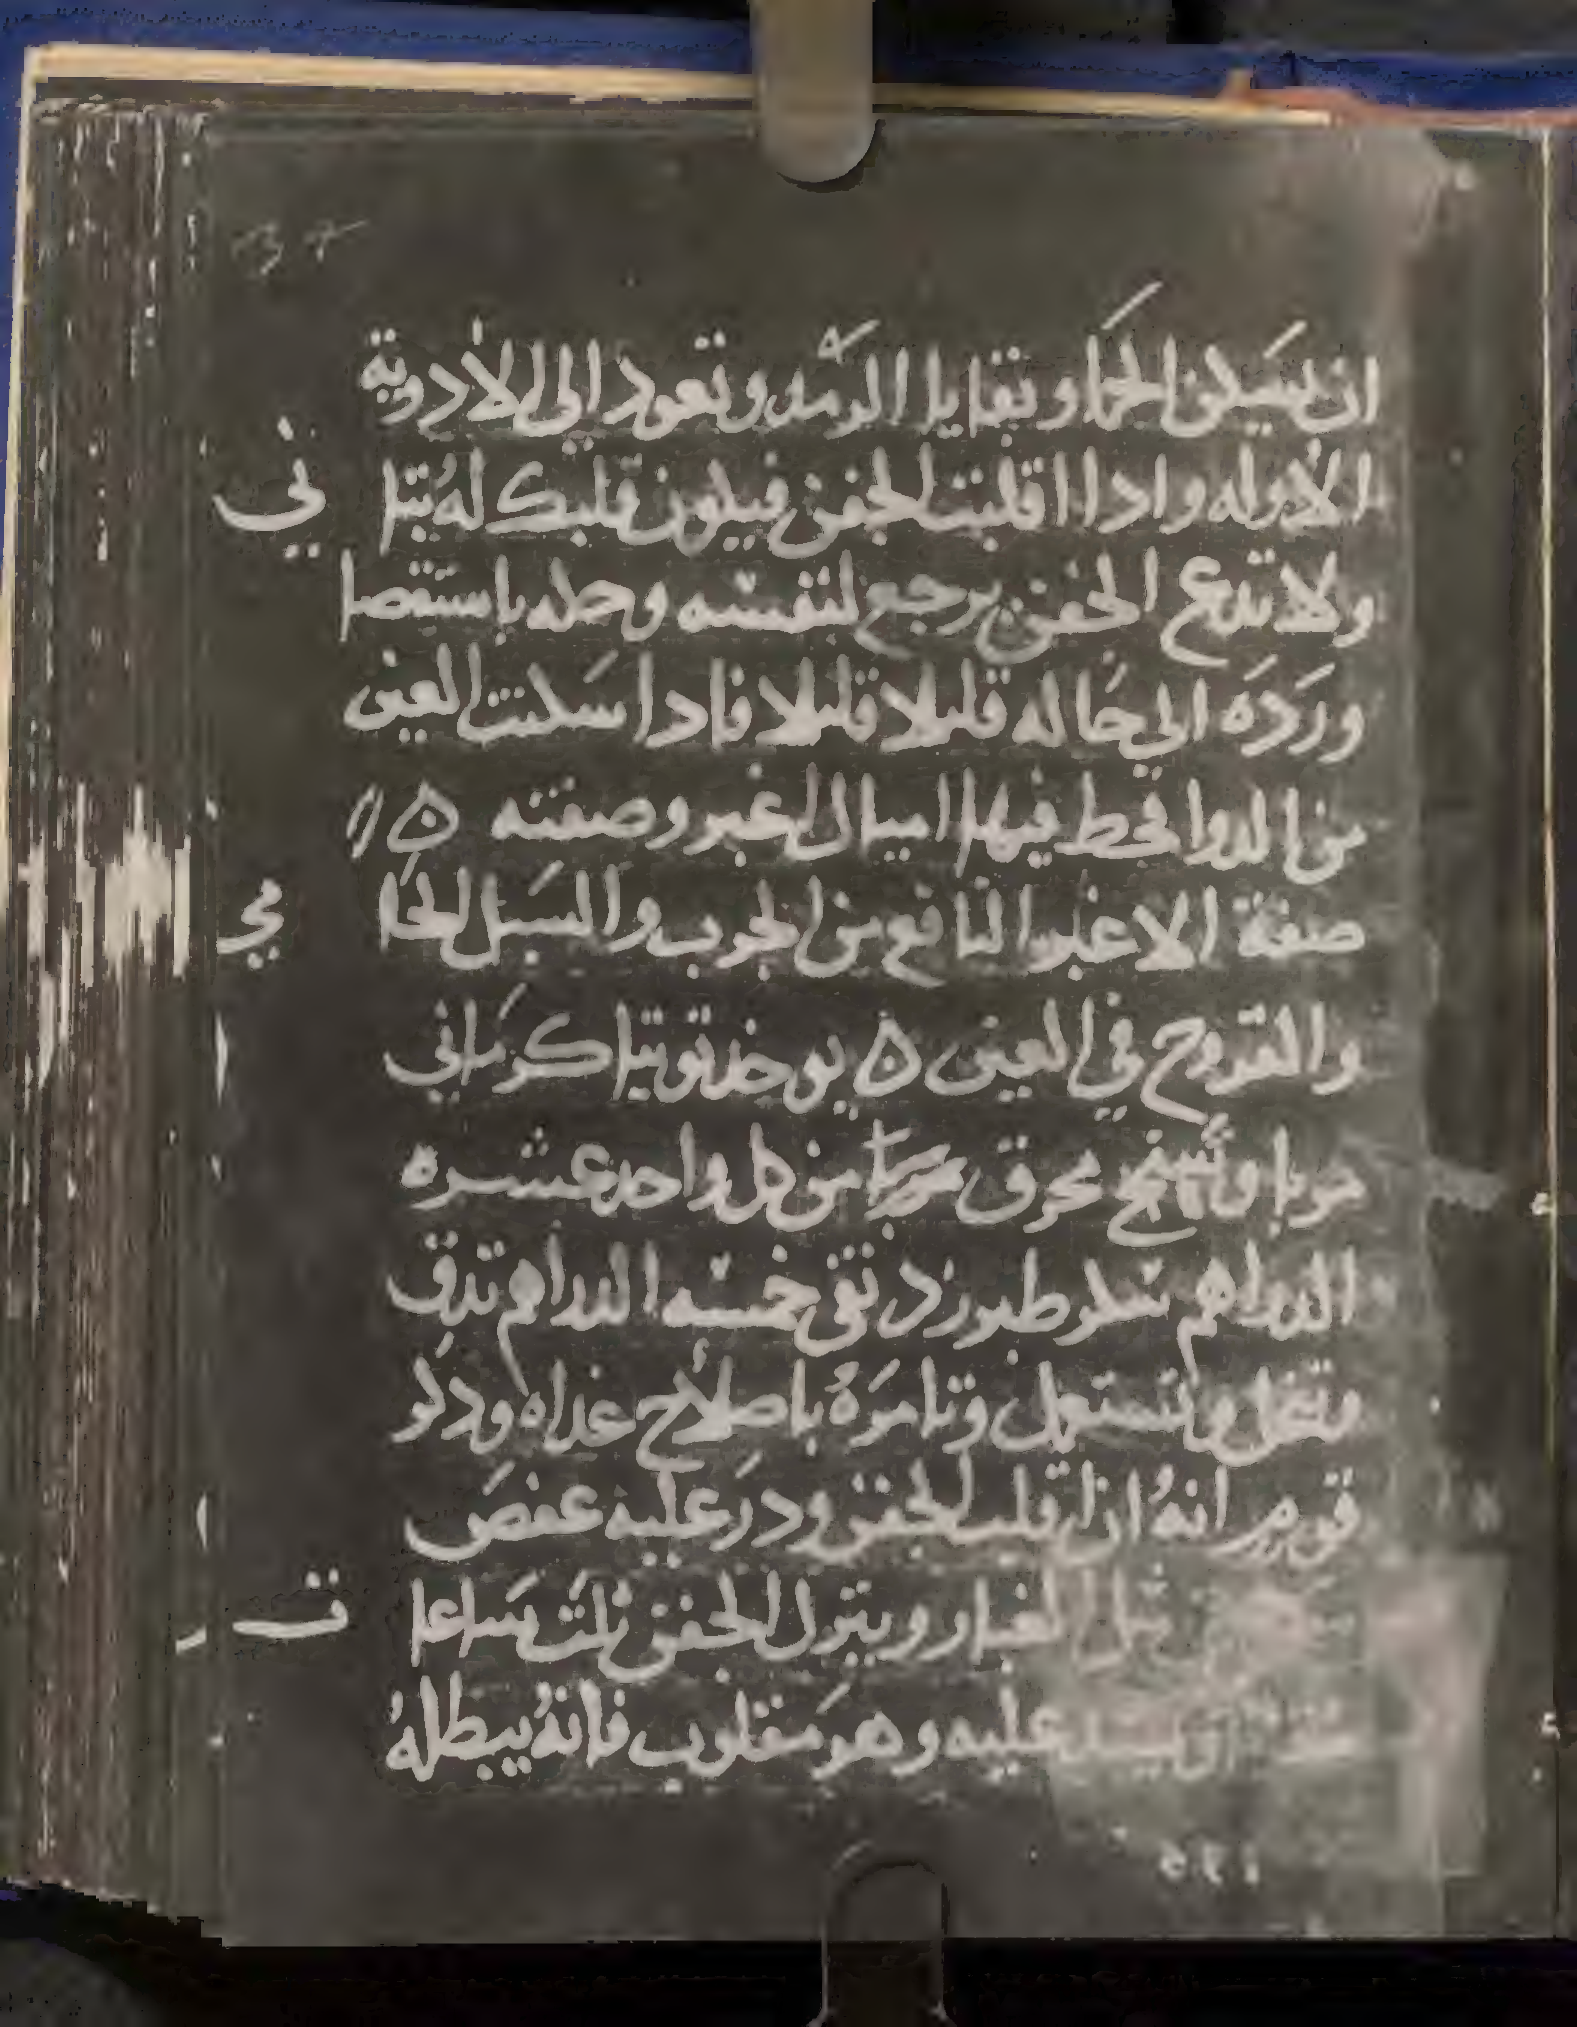 ان يسكن الحما وبقايا الرمد وتعود الي الأدوية
الاوله وادا اقلبت الجفن فيكون قلبك له بتا ني
ولا تدع الجفن يرجع لنفسه وحطه باستقصا
ورَدَه الي حاله قليلا قليلا فادا سكنت العين
من الدوا فحط فيها اميال اغبر وصفته ٥
صفة الاغبر النافع من الجرب والسبل الحا مي
والقروح في العين ٥ يوخد توتيا كرماني
مربا واسفنج محرق من كل واحد عشره
الدراهم سكر طبرزد نقي خمسه الدراهم تدق
وتنخل وتستعمل وتامره باصلاح غداه ودكر
قوم انهُ ادا قلب الجفن ودر عليه عفص
مثل الغبار ويترل الجفن ثلث ساعا ت
يشد عليه وهو مقلوب فانهُ يبطلهُ